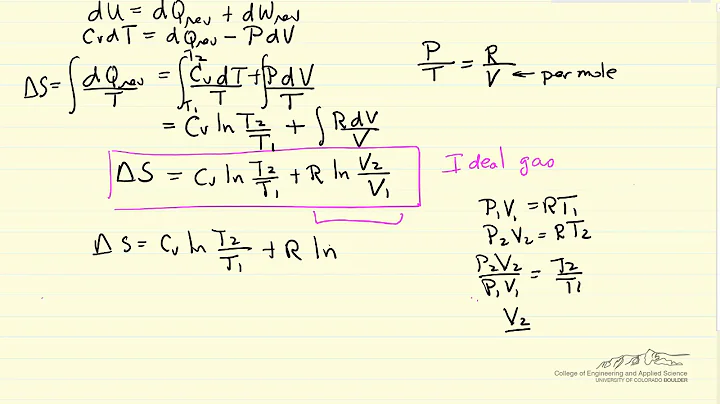 dU = dQrev + dWrev
CvdT = dQrev − PdV
ΔS = ∫ dQrev/T = ∫T1T2 CvdT/T + ∫ PdV/T
= Cv ln T2/T1 + ∫ RdV/V
ΔS = Cv ln T2/T1 + R ln V2/V1
ΔS = Cv ln T2/T1 + R ln
P/T = R/V ← per mole
Ideal gas
P1V1 = RT1
P2V2 = RT2
P2V2/P1V1 = T2/T1
V2
College of Engineering and Applied Science
UNIVERSITY OF COLORADO BOULDER